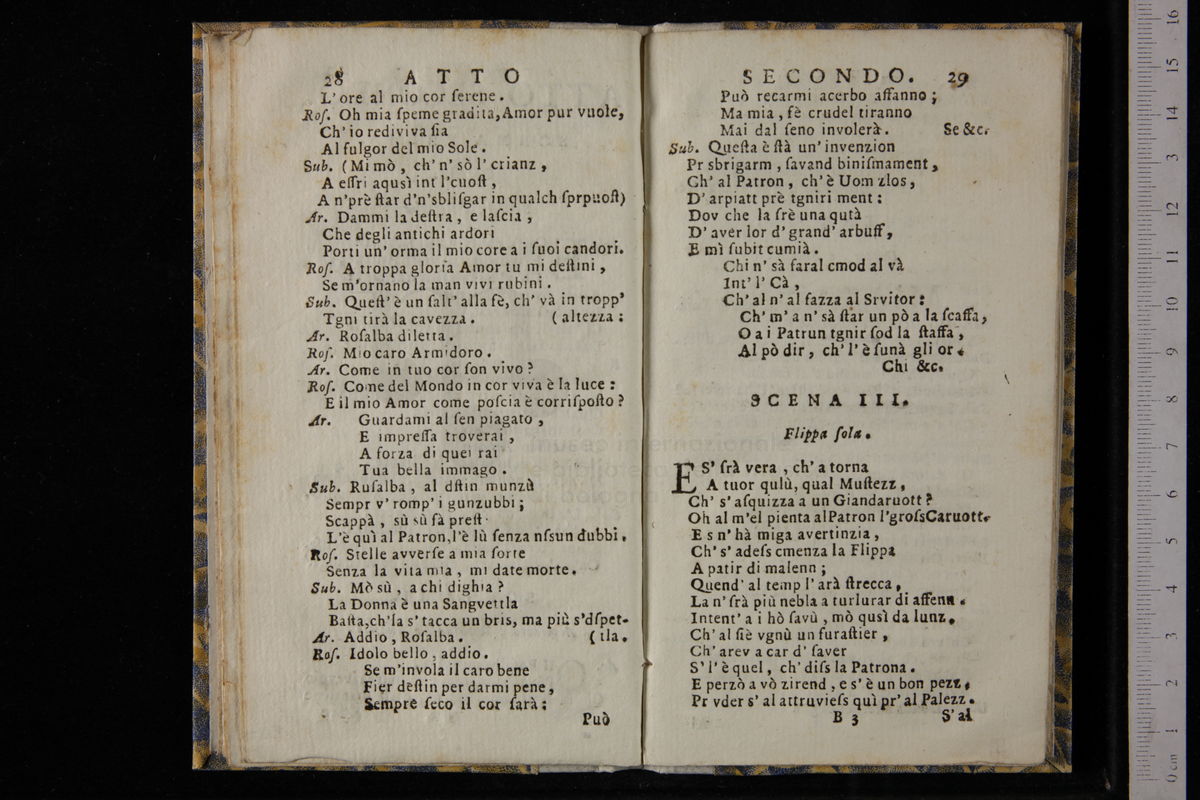 28 ATTO
L'ore al mio cor ſerene.
Roſ. Oh mia ſpeme gradita, Amor pur vuole,
Ch'io rediviva ſia
Al fulgor del mio Sole.
Sub. (Mi mò, ch'n'sò l'crianz,
A eſſri aqusì int l'cuoſt,
A n'prè ſtar d'n'sbliſgar in qualch ſprpuoſt)
Ar. Dammi la deſtra, e laſcia,
Che degli antichi ardori
Porti un'orma il mio core a i ſuoi candori.
Roſ. A troppa gloria Amor tu mi deſtini,
Se m'ornano la man vivi rubini.
Sub. Queſt'è un ſalt'alla fè, ch'và in tropp'
Tgni tirà la cavezza. (altezza:
Ar. Roſalba diletta.
Roſ. Mio caro Armidoro.
Ar. Come in tuo cor ſon vivo?
Roſ. Come del Mondo in cor viva è la luce:
E il mio Amor come poſcia è corriſpoſto?
Ar. Guardami al ſen piagato,
E impreſſa troverai,
A forza di quei rai
Tua bella immago.
Sub. Ruſalba, al dſtin munzù
Sempr v'romp'i gunzubbi;
Scappà, sù sù fà preſt
L'è quì al Patron, l'è lù ſenza nſsun dubbi.
Roſ. Stelle avverſe a mia ſorte
Senza la vita mia, mi date morte.
Sub. Mò sù, a chi dighia?
La Donna è una Sangvettla
Baſta, ch'la s'tacca un bris, ma più s'dſpet-
Ar. Addio, Roſalba. (tla.
Roſ. Idolo bello, addio.
Se m'invola il caro bene
Fier deſtin per darmi pene,
Sempre ſeco il cor ſarà:
Può
SECONDO. 29
Può recarmi acerbo affanno;
Ma mia, fè crudel tiranno
Mai dal ſeno involerà. Se &c.
Sub. Queſta è ſtà un'invenzion
Pr sbrigarm, ſavand biniſmament,
Ch'al Patron, ch'è Uom zlos,
D'arpiatt prè tgniri ment:
Dov che la ſrè una qutà
D'aver lor d'grand'arbuff,
E mì ſubit cumià.
Chi n'sà faral cmod al và
Int'l'Cà,
Ch'al n'al fazza al Srvitor:
Ch'm'a n'sà ſtar un pò a la ſcaffa,
O a i Patrun tgnir ſod la ſtaffa,
Al pò dir, ch'l'è funà gli or.
Chi &c.
SCENA III.
Flippa ſola.
E S'frà vera, ch'a torna
A tuor qulù, qual Muſtezz,
Ch's'aſquizza a un Giandaruott?
Oh al m'el pienta al Patron l'groſs Caruott.
E s n'hà miga avertinzia,
Ch's'adeſs cmenza la Flippa
A patir di malenn;
Quend'al temp l'arà ſtrecca,
La n'frà più nebla a turlurar di affenn.
Intent'a i hò ſavù, mò qusì da lunz,
Ch'al ſiè vgnù un furaſtier,
Ch'arev a car d'ſaver
S'l'è quel, ch'diſs la Patrona.
E perzò a vò zirend, e s'è un bon pezz,
Pr vder s'al attruvieſs quì pr'al Palezz.
B 3 S'al